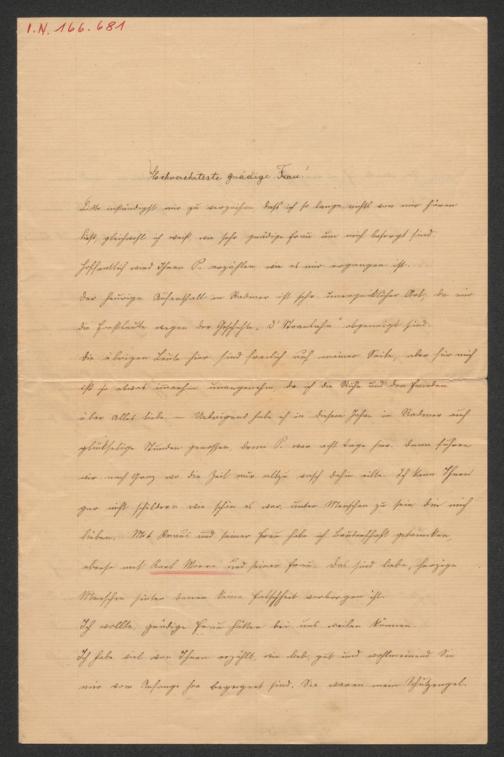 I.N. 166.681
Hochverehrteste gnädige Frau!
Bitte inständigst mir zu verzeihen daß ich so lange nichts von mir hören
ließ, gleichwohl ich weiß, wie sehr gnädige Frau um mich besorgt sind.
Hoffentlich wird Ihnen P. erzählen wie es mir ergangen ist.
Der heurige Aufenthalt in Radmer ist sehr unerquicklicher Art, da mir
die wegen der Geschichte "D' Stoanbahn" abgeneigt sind.
Die übrigen Leute hier sind freilich auf meiner Seite, aber für mich
ist so etwas immerhin unangenehm, da ich die Ruhe und den Frieden
über Alles liebe. – Uebrigens habe ich in diesem Jahre in Radmer auch
glückselige Stunden genossen, denn P. war acht Tage hier. Dann fuhren
wir nach Graz wo die Zeit nur allzu rasch dahin eilte. Ich kann Ihnen
gar nicht schildern wie schön es war, unter Menschen zu sein die mich
lieben. Mit und seiner Frau habe ich Bruderschaft getrunken,
ebenso mit Karl Morre und seiner Frau. Das sind liebe, herzige
Menschen hinter denen keine Falschheit verborgen ist.
Ich wollte, gnädige Frau hätten bei uns weilen können.
Ich habe viel von Ihnen erzählt, wie lieb, gut und wohlmeinend Sie
mir vom Anfange her begegnet sind. Sie waren mein Schutzengel.